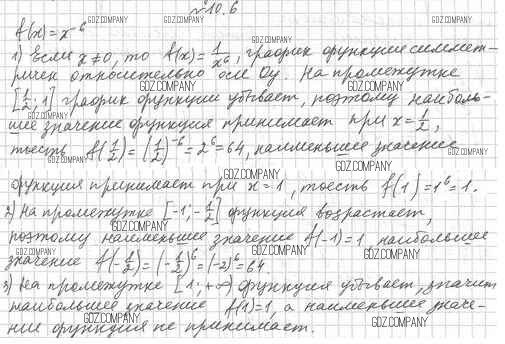 №10.6
GDZ.COMPANY GDZ.COMPANY GDZ.COMPANY
f(x)=x⁻⁶
1) Если x≠0, то f(x)=1/x⁶, график функции симмет-
GDZ.COMPANY
ричен относительно оси Oy. На промежутке
GDZ.COMPANY GDZ.COMPANY
[1/2; 1] график функции убывает, поэтому наиболь-
GDZ.COMPANY
шее значение функция принимает при x=1/2,
тоесть f(1/2)=(1/2)⁻⁶=2⁶=64, наименьшее значение
GDZ.COMPANY GDZ.COMPANY GDZ.COMPANY
GDZ.COMPANY
функция принимает при x=1, тоесть f(1)=1⁶=1.
2) На промежутке [-1;-1/2] функция возрастает,
GDZ.COMPANY
поэтому наименьшее значение f(-1)=1, наибольшее
GDZ.COMPANY GDZ.COMPANY GDZ.COMPANY
значение f(-1/2)=(-1/2)⁻⁶=(-2)⁶=64.
3) На промежутке [1;+∞) функция убывает, значит
GDZ.COMPANY
наибольшее значение f(1)=1, а наименьшее значе-
ние функция не принимает.
GDZ.COMPANY GDZ.COMPANY